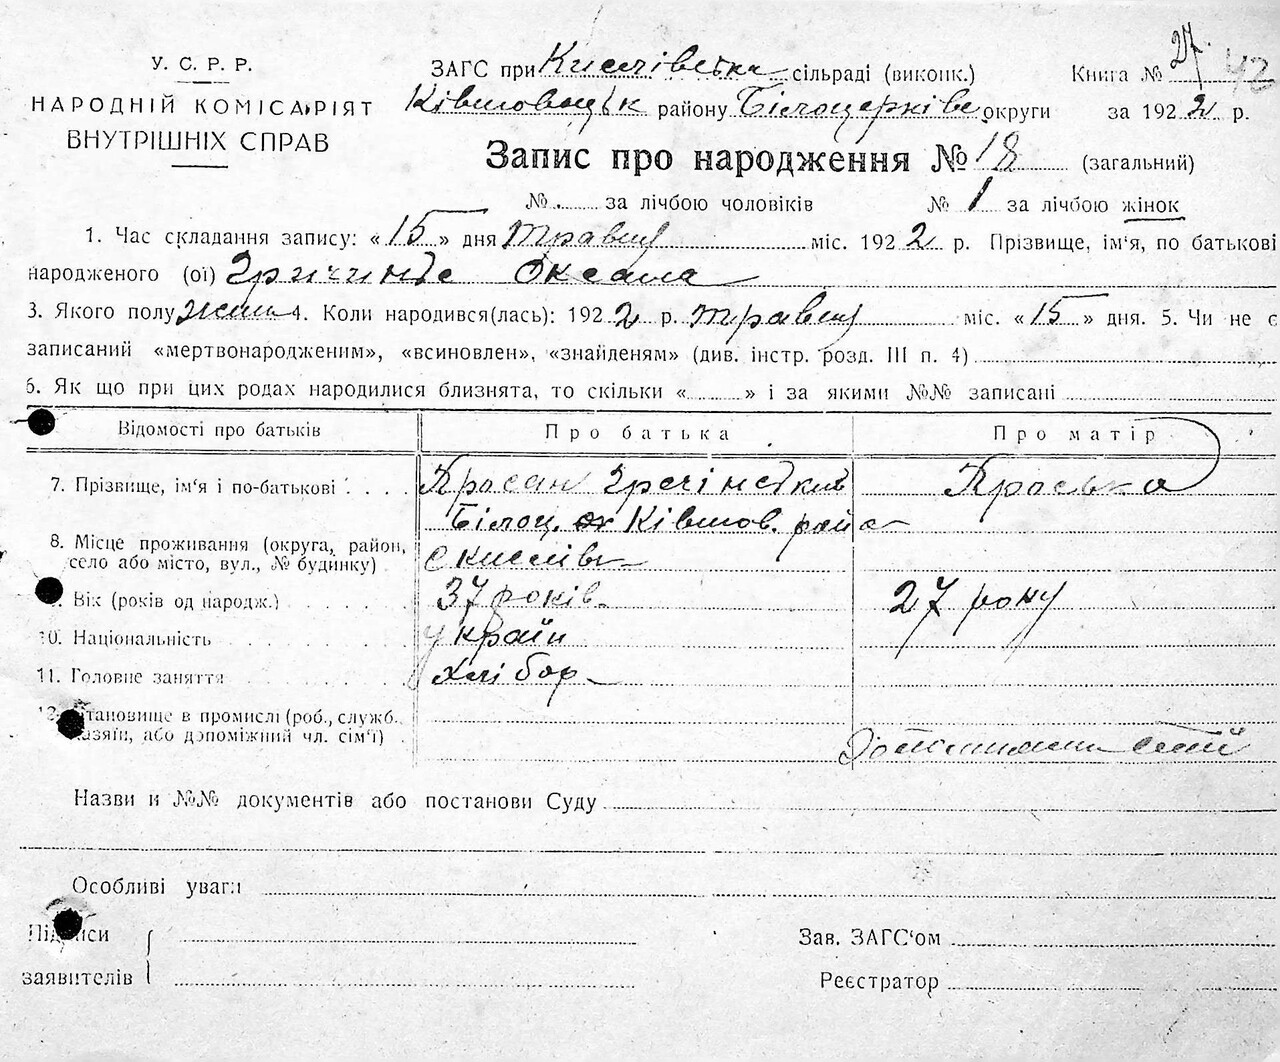 У. С. Р. Р.
НАРОДНІЙ КОМІСАРІЯТ
ВНУТРІШНІХ СПРАВ
ЗАГС при Киселівська сільраді (виконк.)
Книга № 27 42
Ківшовацьк району Білоцерківс округи за 1922 р.
Запис про народження № 18 (загальний)
№ . за лічбою чоловіків № 1 за лічбою жінок
1. Час складання запису: « 15 » дня травня міс. 1922 р. Прізвище, ім'я, по батькові
народженого (ої) Оксана
3. Якого полу жін 4. Коли народився(лась): 1922 р. травня міс. « 15 » дня. 5. Чи не є
записаний «мертвонародженим», «всиновлен», «знайденям» (див. інстр. розд. III п. 4)
6. Як що при цих родах народилися близнята, то скільки « » і за якими №№ записані
Відомості про батьків Про батька Про матір
7. Прізвище, ім'я і по-батькові
Білоц. ок Ківшов. район
8. Місце проживання (округа, район,
село або місто, вул., № будинку) с Киселівк
9. Вік (років од народж.) 37 років 27 року
10. Національність україн
11. Головне заняття хлібор
12. Становище в промислі (роб., служб.
хазяїн, або допоміжний чл. сім'ї) сімї
Назви и №№ документів або постанови Суду
Особливі уваги
Підписи
заявителів
Зав. ЗАГС'ом
Реєстратор